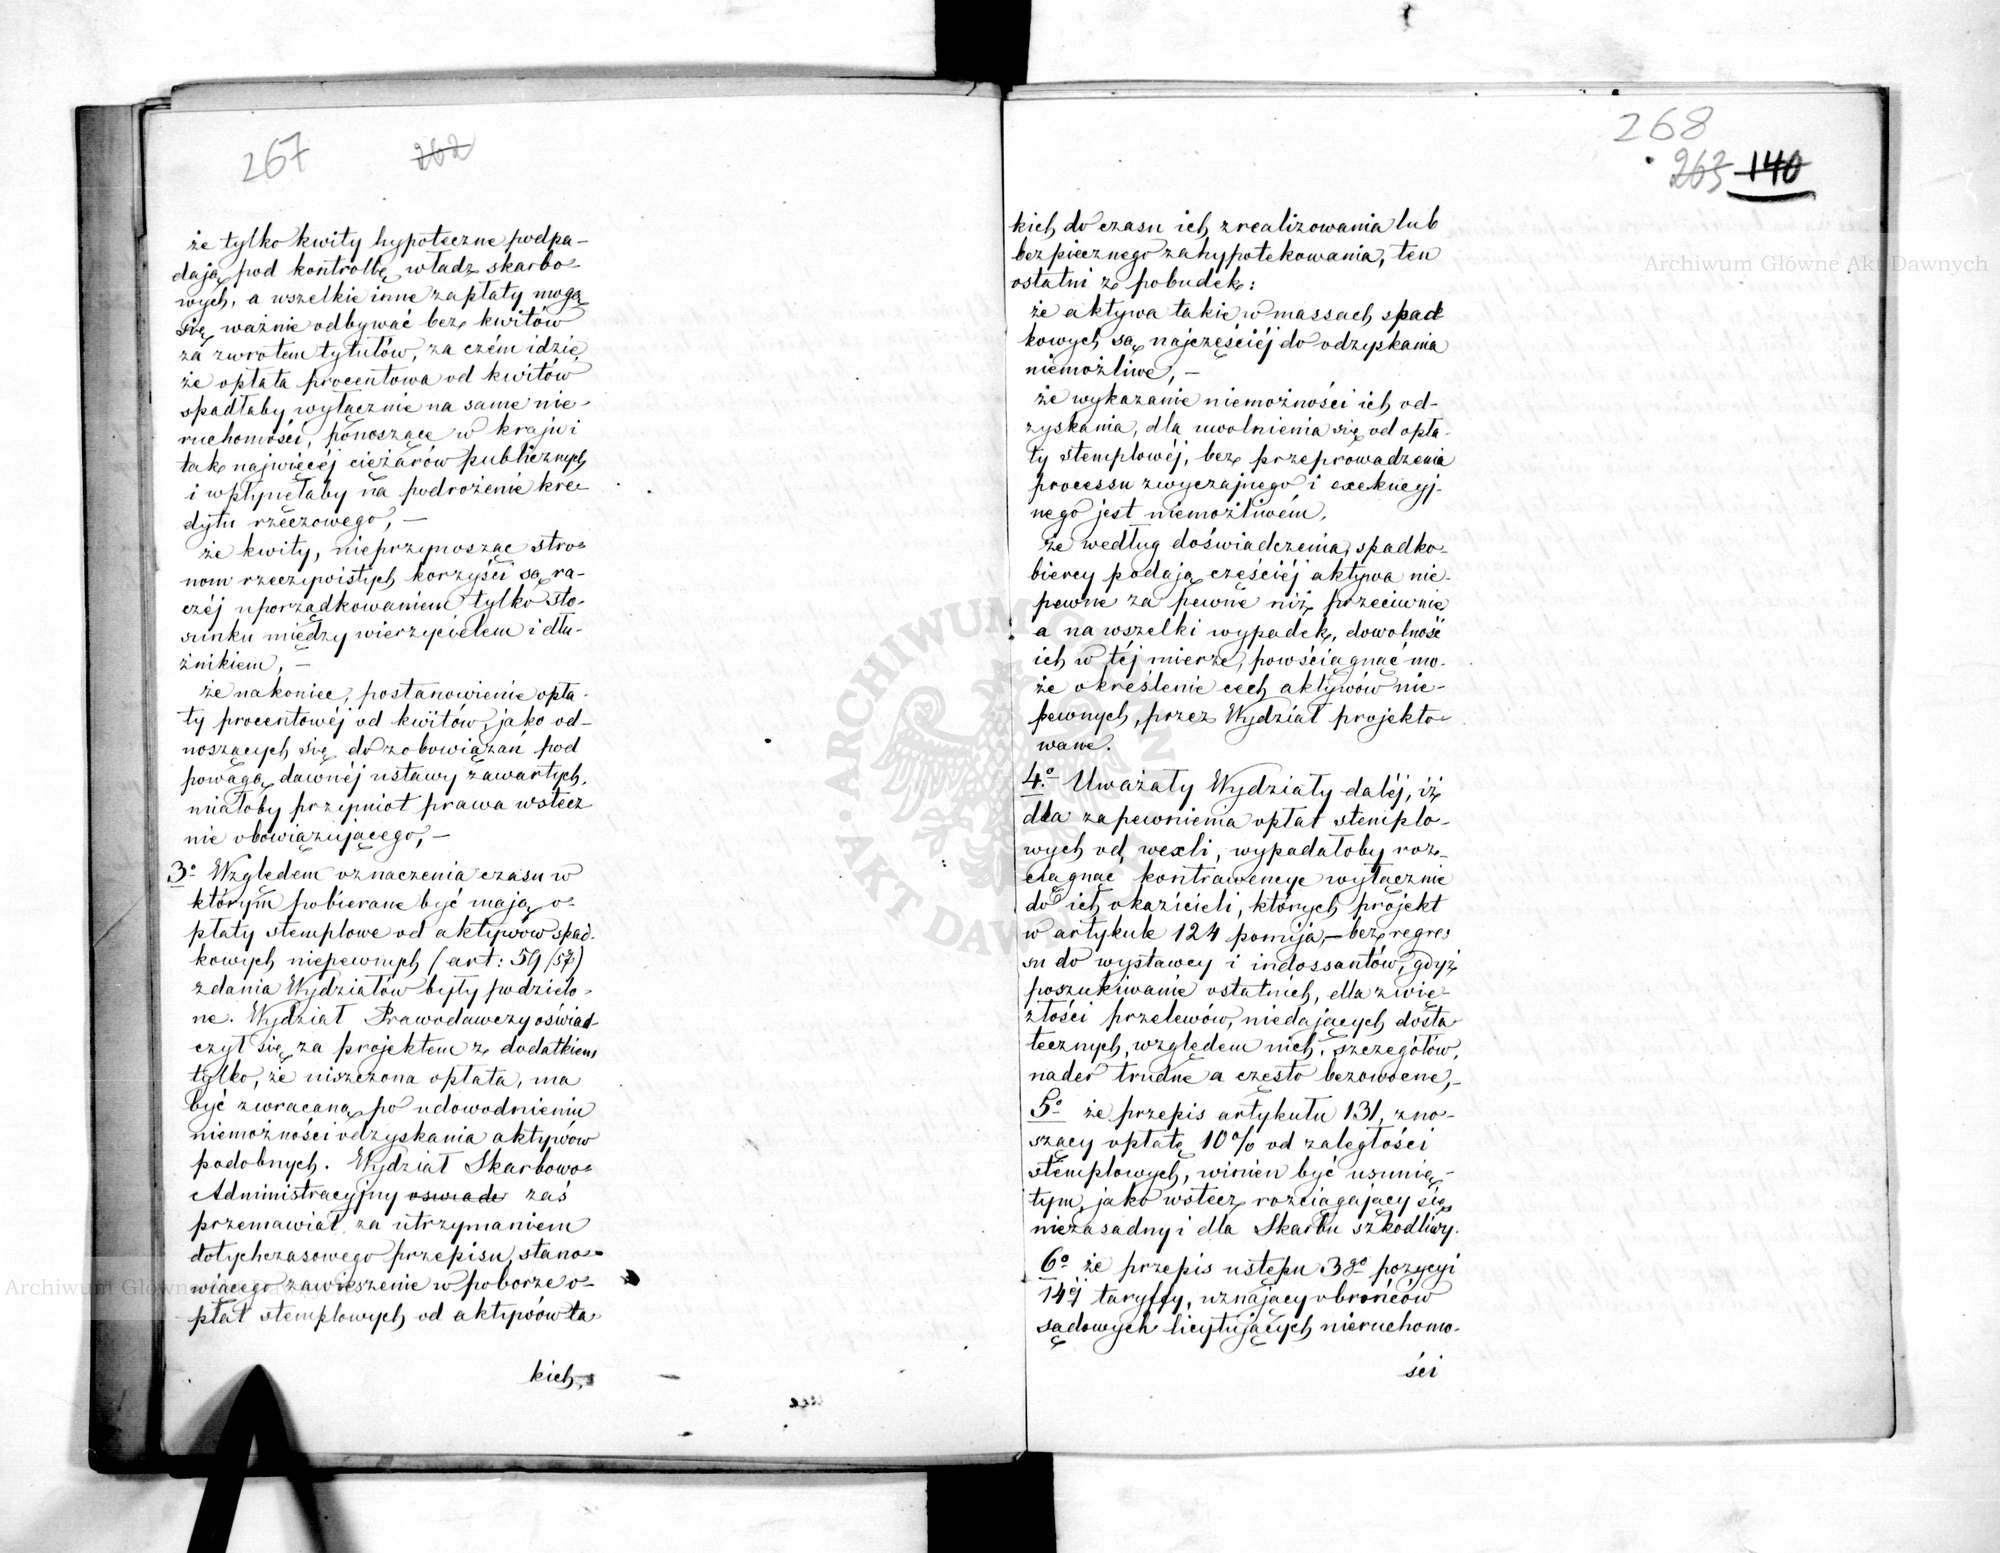 267 262
że tylko kwity hypoteczne podpa-
dają pod kontrollę władz skarbo-
wych, a wszelkie inne zapłaty mogą
się ważnie odbywać bez kwitów
za zwrotem tytułów, za czém idzie,
że opłata procentowa od kwitów
spadłaby wyłącznie na same nie-
ruchomości, ponoszące w kraju i
tak najwięcéj ciężarów publicznych
i wpłynęłaby na podrożenie kre-
dytu rzeczowego, —
że kwity, nieprzynosząc stro-
nom rzeczywistych korzyści są ra-
czéj uporządkowaniem tylko sto-
sunku między wierzycielem i dłu-
żnikiem, —
że nakoniec, postanowienie opła-
ty procentowéj od kwitów, jako od-
noszących się do zobowiązań pod
powagą dawnéj ustawy zawartych,
miałoby przymiot prawa wstecz
nie obowiązującego, —
3o Względem oznaczenia czasu w
którym pobierane być mają o-
płaty stemplowe od aktywów spad-
kowych niepewnych (art: 59/57)
zdania Wydziałów były podzielo-
ne. Wydział Prawodawczy oświad-
czył się za projektem z dodatkiem
tylko, że uiszczona opłata, ma
być zwracaną po udowodnieniu
niemożności odzyskania aktywów
podobnych. Wydział Skarbowo-
Administracyjny oswiade zaś
przemawiał za utrzymaniem
dotychczasowego przepisu, stano-
wiącego zawieszenie w poborze o-
płat stemplowych od aktywów ta-
kich,
268
263 140
kich do czasu ich zrealizowania lub
bezpiecznego zahypotekowania, ten
ostatni z pobudek:
że aktywa takie w massach spad
kowych są najczęściéj do odzyskania
niemożliwe, —
że wykazanie niemożności ich od-
zyskania, dla uwolnienia się od opła-
ty stemplowéj, bez przeprowadzenia
processu zwyczajnego i exekucyj-
nego jest niemożliwém,
że według doświadczenia, spadko-
biercy podają częściéj aktywa nie-
pewne za pewne niż przeciwnie
a na wszelki wypadek, dowolność
ich w téj mierze, powściągnąć mo-
że określenie cech aktywów nie-
pewnych, przez Wydział projekto-
wane.
4o Uważały Wydziały daléj, iż
dla zapewnienia opłat stemplo-
wych od wexli, wypadałoby roz-
ciągnąć kontrawencye wyłącznie
do ich okazicieli, których projekt
w artykule 124 pomija, — bez regres
su do wystawcy i indossantów, gdyż
poszukiwanie ostatnich, dla zwię-
złości przelewów, niedających dosta
tecznych, względem nich, szczegółów,
nader trudne a często bezowocne, —
5o że przepis artykułu 131, zno-
szący opłatę 10% od zaległości
stemplowych, winien być usunię-
tym, jako wstecz rozciągający się,
niezasadny i dla Skarbu szkodliwy.
6o że przepis ustępu 3go pozycyi
14éj taryffy, uznający obrońców
sądowych licytujących nieruchomo-
ści
Archiwum Główne Akt Dawnych
Archiwum Główne Akt Dawnych
ARCHIWUM GŁÓWNE AKT DAWNYCH